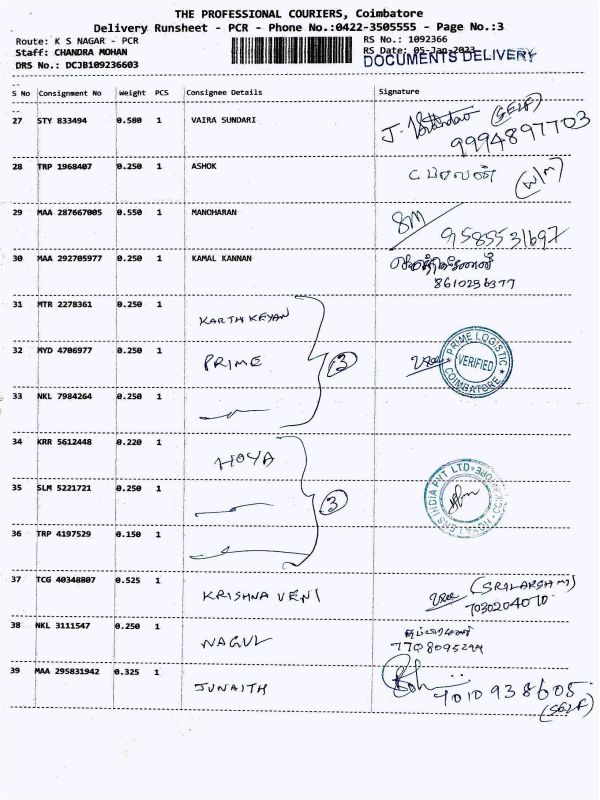 THE PROFESSIONAL COURIERS, Coimbatore
Delivery Runsheet - PCR - Phone No.:0422-3505555 - Page No.:3
Route: K S NAGAR - PCR
RS No.: 1092366
Staff: CHANDRA MOHAN
RS Date: 05-Jan-2023
DRS No.: DCJB109236603
DOCUMENTS DELIVERY
S No Consignment No Weight PCS Consignee Details Signature
27 STY 833494 0.580 1 VAIRA SUNDARI
(SELF)
9994897703
28 TRP 1968407 0.250 1 ASHOK
(W/M)
29 MAA 287667005 0.550 1 MANOHARAN
9585531697
30 MAA 292705977 0.250 1 KAMAL KANNAN
8610236377
31 MTR 2278361 0.250 1 KARTHIKEYAN
32 MYD 4706977 0.250 1 PRIME 3
PRIME LOGISTIC
VERIFIED
COIMBATORE
33 NKL 7984264 0.250 1
34 KRR 5612448 0.220 1 HOYA
35 SLM 5221721 0.250 1 3
LENS INDIA PVT LTD
36 TRP 4197529 0.150 1
37 TCG 40348807 0.525 1 KRISHNA VENI
7030204070
38 NKL 3111547 0.250 1 NAGUL
39 MAA 295831942 0.325 1 JUNAITH
7010938605
(SELF)